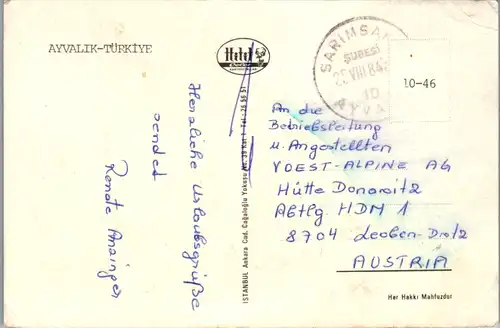 AYVALIK-TÜRKİYE
Herzliche Urlaubsgrüße
sendet
Renate
İSTANBUL Ankara Cad. Cağaloğlu Yokuşu No. Kat 1 - Tel: 26 56 51
SARIMSAK
ŞUBESİ
25 VIII 84
10
AYVA
10-46
An die
Betriebsleitung
u. Angestellten
VOEST-ALPINE AG
Hütte Donawitz
Abtlg. HDM 1
8704 Leoben-Do
AUSTRIA
Her Hakkı Mahfuzdur